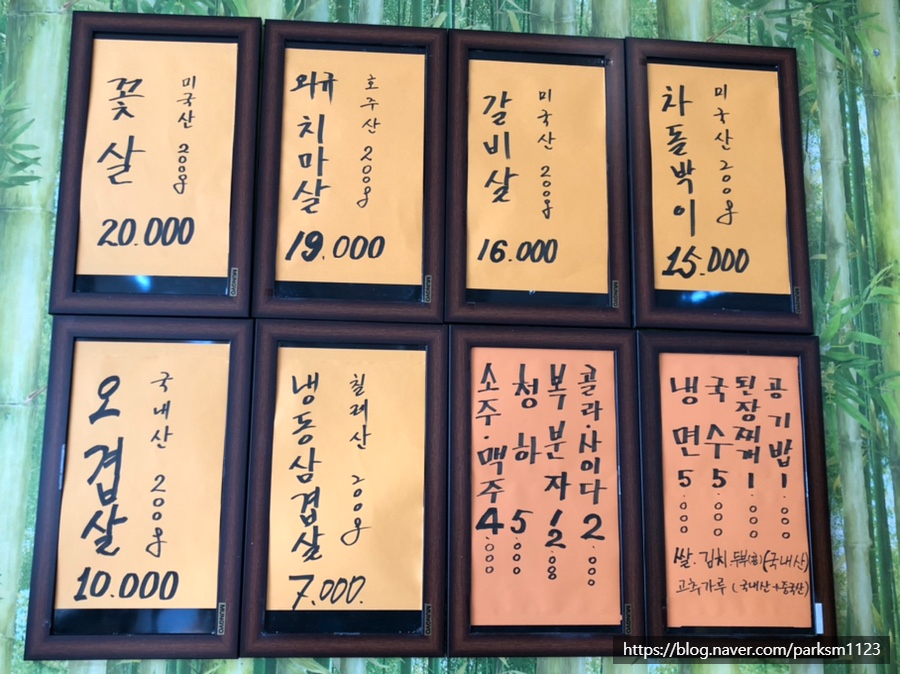 꽃살
미국산 200g
20.000
와규 치마살
호주산 200g
19.000
갈비살
미국산 200g
16.000
차돌박이
미국산 200g
15.000
오겹살
국내산 200g
10.000
냉동삼겹살
칠레산 200g
7.000.
소주.맥주 4.000
청하 5.000
복분자 12.000
콜라.사이다 2.000
냉면 5.000
국수 5.000
된장찌개 1.000
공기밥 1.000
쌀.김치.두부(콩)(국내산)
고추가루 (국내산+중국산)
https://blog.naver.com/parksm1123